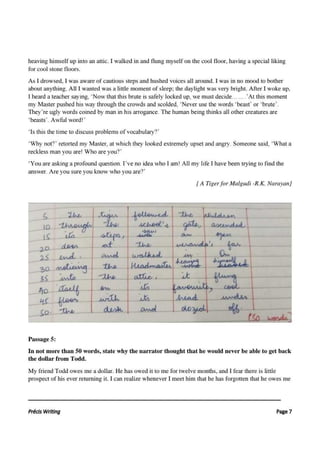 heaving himself up into an attic. I walked in and flung myself on the cool floor, having a special liking
for cool stone floors.
As I drowsed, I was aware of cautious steps and hushed voices all around. I was in no mood to bother
about anything. All I wanted was a little moment of sleep; the daylight was very bright. After I woke up,
I heard a teacher saying, 'Now that this brute is safely locked up, we must decide…….'At this moment
my Master pushed his way through the crowds and scolded, 'Never use the words 'beast' or 'brute'.
They're ugly words coined by man in his arrogance. The human being thinks all other creatures are
'beasts'. Awful word!'
'Is this the time to discuss problems of vocabulary?'
'Why not?' retorted my Master, at which they looked extremely upset and angry. Someone said, 'What a
reckless man you are! Who are you?'
'You are asking a profound question. I've no idea who I am! All my life I have been trying to find the
answer. Are you sure you know who you are?'
[ A Tiger for Malgudi -R.K. Narayan]
5 The tiger followed the children
10 through the school's gate, ascended
15 its steps, saw an open
20 door at the veranda's far
25 end, and walked in. On
30 noticing the Headmaster heaving himself
35 into the attic, it flung
40 itself on its favourite, cool
45 floor with its head under
50 the desk and dozed off.
(50 words)
Passage 5:
In not more than 50 words, state why the narrator thought that he would never be able to get back
the dollar from Todd.
My friend Todd owes me a dollar. He has owed it to me for twelve months, and I fear there is little
prospect of his ever returning it. I can realize whenever I meet him that he has forgotten that he owes me
Précis Writing Page 7